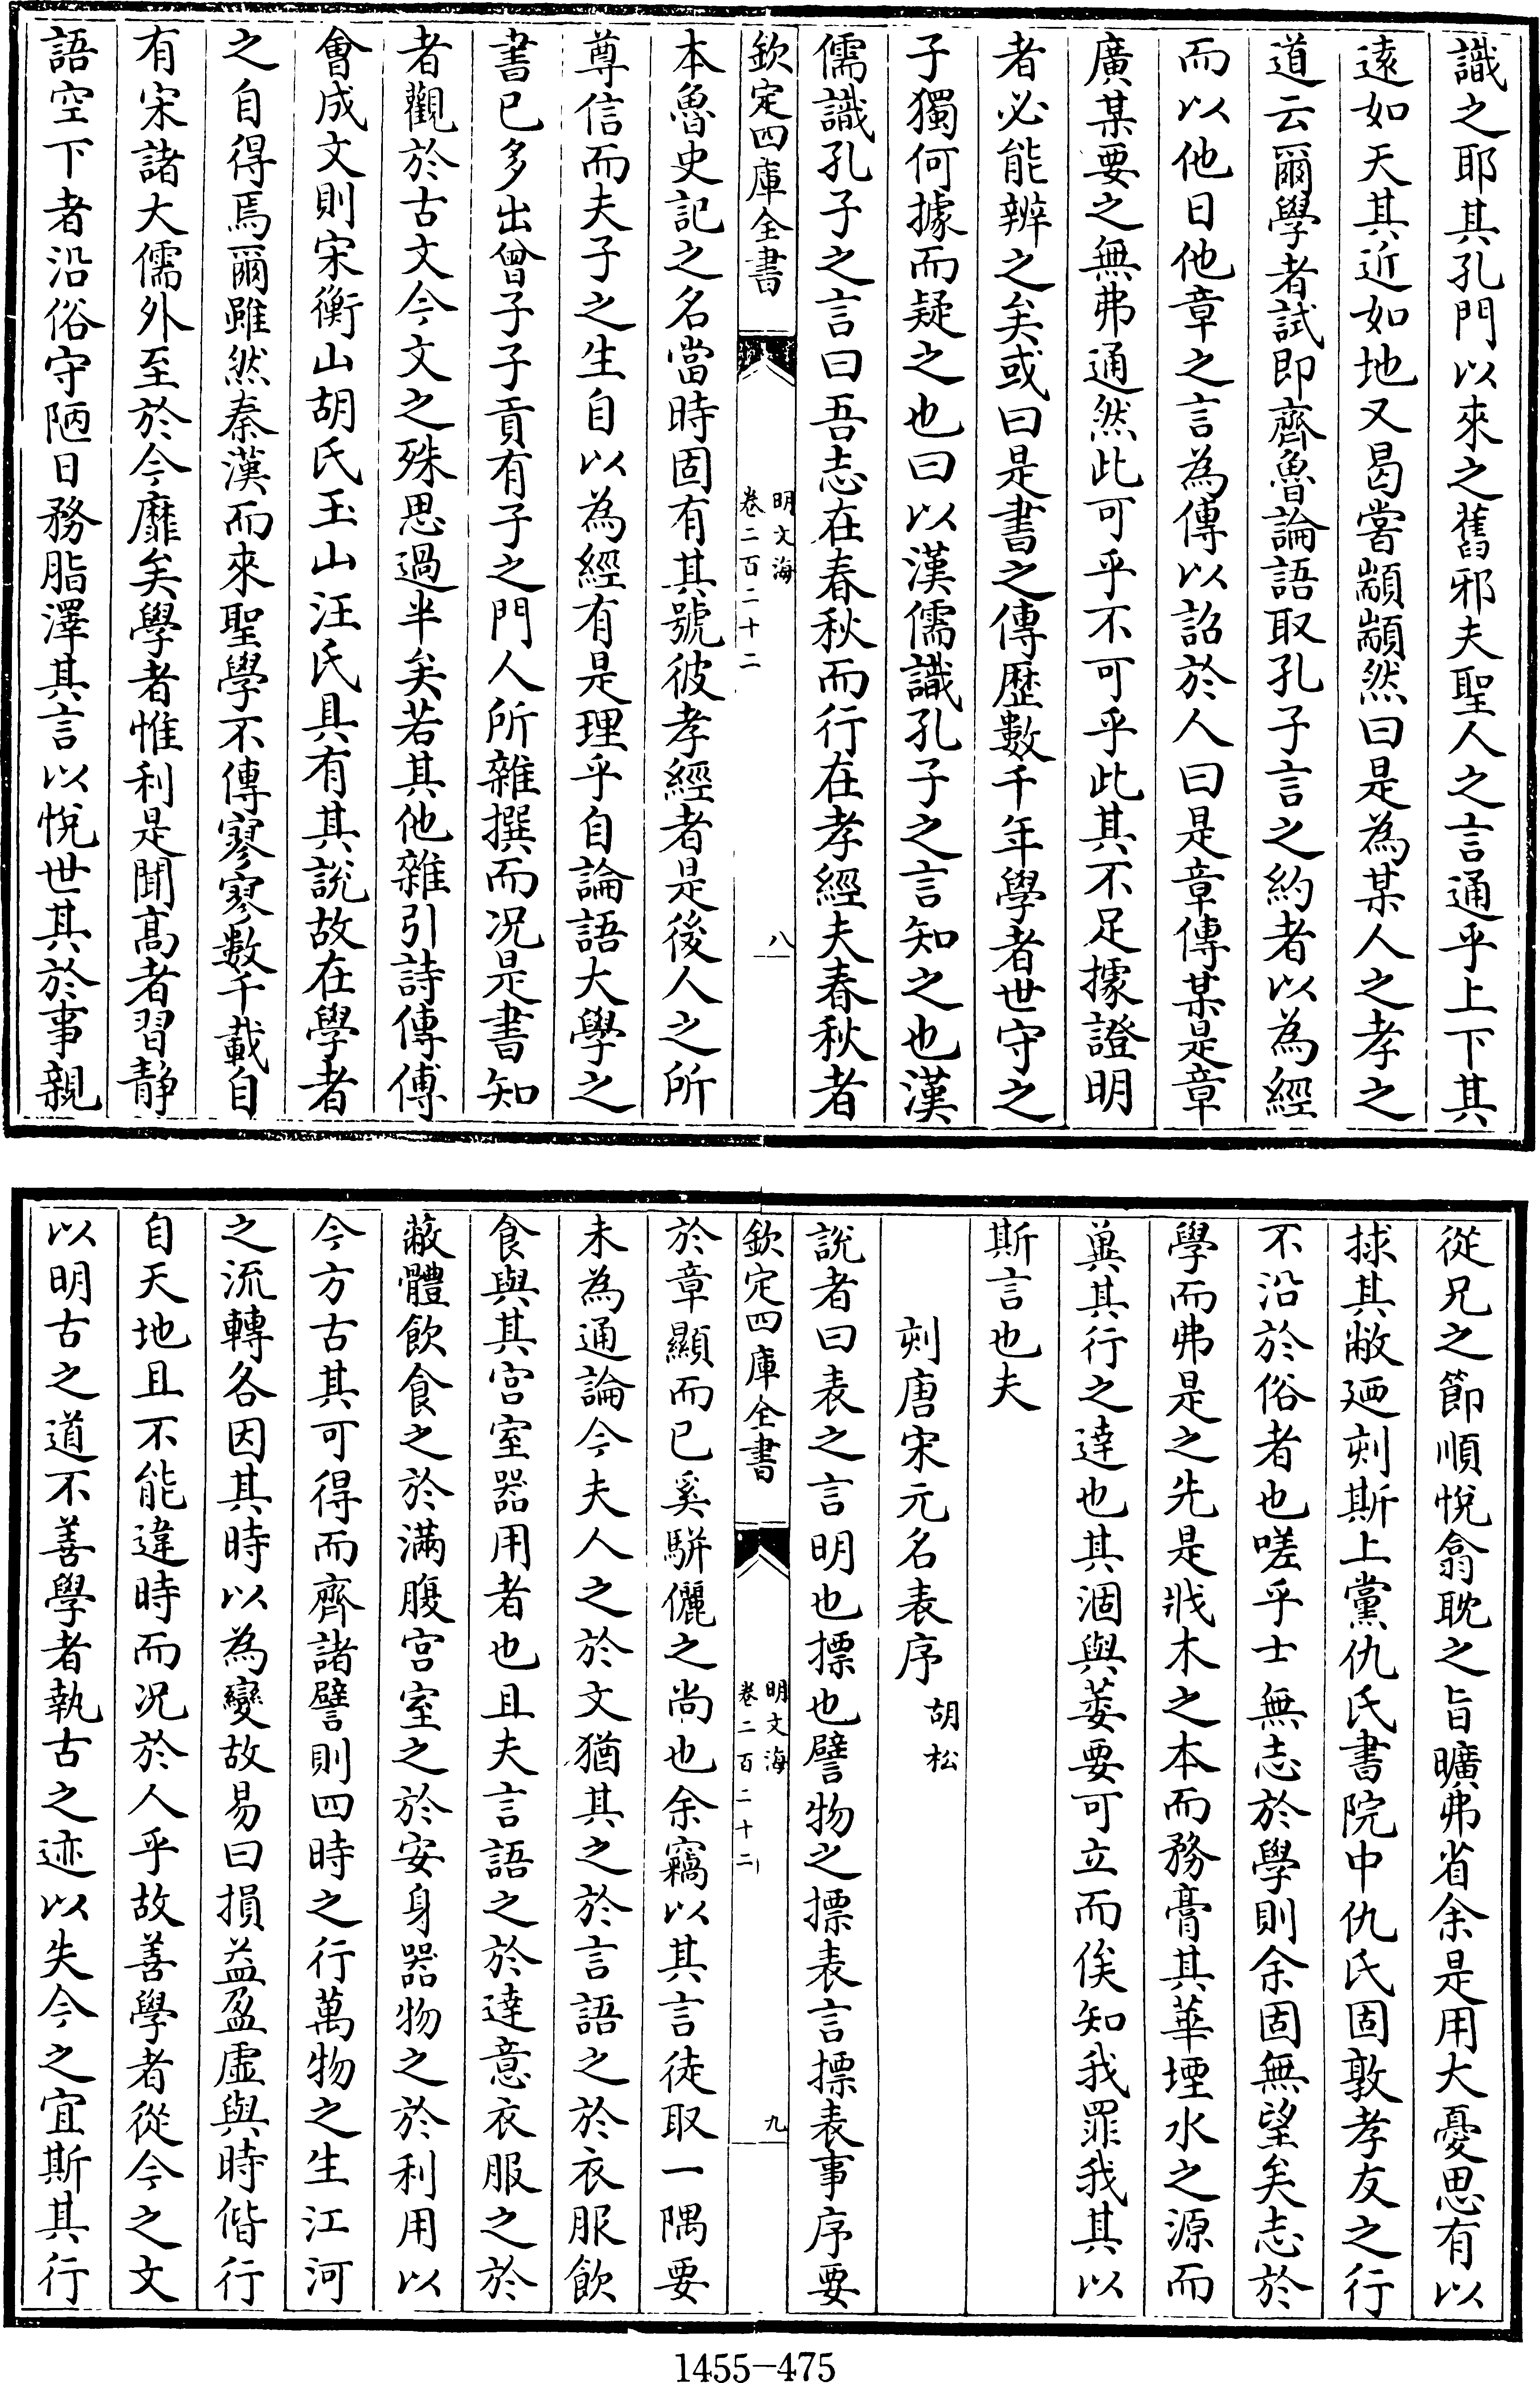 識之耶其孔門以來之舊邪夫聖人之言通乎上下其
遠如天其近如地又曷嘗顓顓然曰是為某人之孝之
道云爾學者試即齊魯論語取孔子言之約者以為經
而以他日他章之言為傳以詔於人曰是章傳某是章
廣某要之無弗通然此可乎不可乎此其不足據證明
者必能辨之矣或曰是書之傳歷數千年學者世守之
子獨何據而疑之也曰以漢儒識孔子之言知之也漢
儒識孔子之言曰吾志在春秋而行在孝經夫春秋者
欽定四庫全書
明文海
卷二百二十二
八
本魯史記之名當時固有其號彼孝經者是後人之所
尊信而夫子之生自以為經有是理乎自論語大學之
書已多出曾子子貢有子之門人所雜撰而况是書知
者觀於古文今文之殊思過半矣若其他雜引詩傳傅
會成文則宋衡山胡氏玉山汪氏具有其說故在學者
之自得焉爾雖然秦漢而來聖學不傳寥寥數千載自
有宋諸大儒外至於今靡矣學者惟利是聞高者習静
語空下者沿俗守陋日務脂澤其言以悅世其於事親
從兄之節順悅翕耽之旨曠弗省余是用大憂思有以
捄其敝廼刻斯上黨仇氏書院中仇氏固敦孝友之行
不沿於俗者也嗟乎士無志於學則余固無望矣志於
學而弗是之先是戕木之本而務膏其華堙水之源而
冀其行之達也其涸與萎要可立而俟知我罪我其以
斯言也夫
刻唐宋元名表序
胡松
說者曰表之言明也摽也譬物之摽表言摽表事序要
欽定四庫全書
明文海
卷二百二十二
九
於章顯而已奚駢儷之尚也余竊以其言徒取一隅要
未為通論今夫人之於文猶其之於言語之於衣服飲
食與其宮室器用者也且夫言語之於達意衣服之於
蔽體飲食之於滿腹宮室之於安身器物之於利用以
今方古其可得而齊諸譬則四時之行萬物之生江河
之流轉各因其時以為變故易曰損益盈虛與時偕行
自天地且不能違時而况於人乎故善學者從今之文
以明古之道不善學者執古之迹以失今之宜斯其行
1455-475